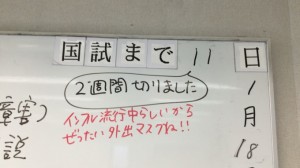 国試まで11日
2週間切りました
インフル流行中らしいから
ぜったい外出マスクね!!
1
月
18
障害(
説